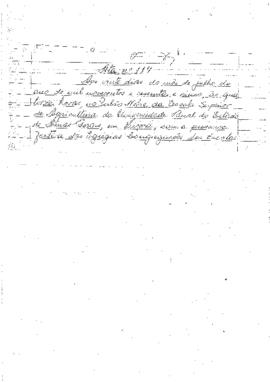 Ata nº 114
Aos vinte dias do mês de julho do
ano de mil novecentos e sessenta e
horas, no Salão Nobre da Escola Superior
de Agricultura da Universidade Rural do Estado
de Minas Gerais, em Viçosa, com a presença
das Egrégias Congregações das Escolas